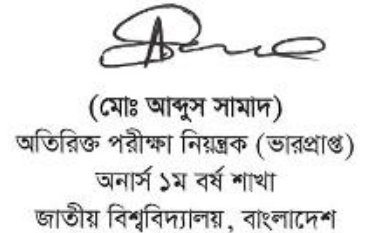 (মোঃ আব্দুস সামাদ)
অতিরিক্ত পরীক্ষা নিয়ন্ত্রক (ভারপ্রাপ্ত)
অনার্স ১ম বর্ষ শাখা
জাতীয় বিশ্ববিদ্যালয়, বাংলাদেশ